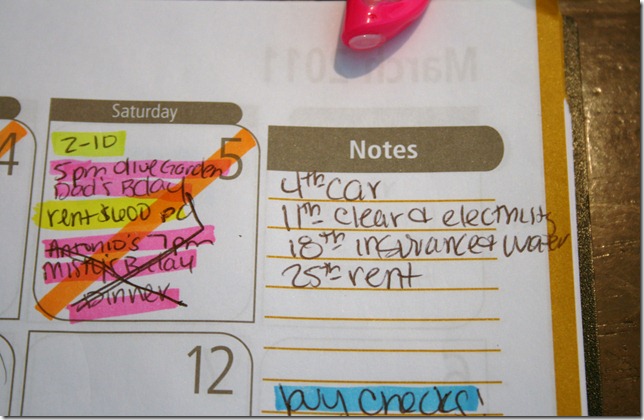 March 2011
Saturday
4
5
2-10
5pm Olive Garden
Dad's Bday
rent $600 pd
Antonio's 7pm
Misti's Bday
Dinner
12
Notes
4th car
11th clear & electricity
18th insurance & water
25th rent
buy checks!